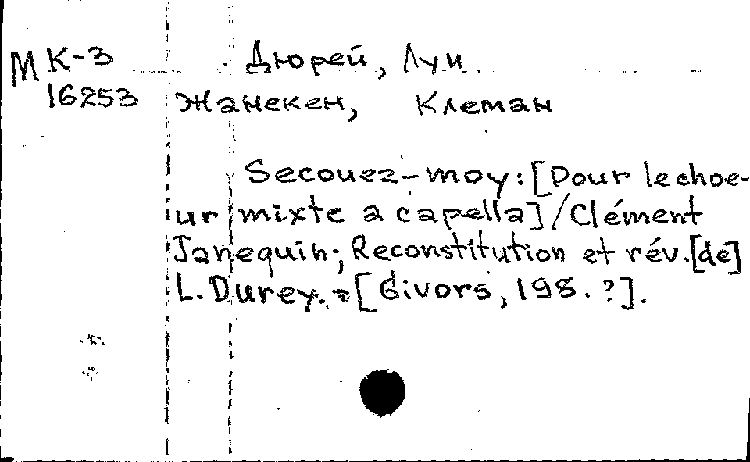 МК-3 Дюрей, Луи
16253 Жанекен, Клеман
Secouez-moy: [Pour le choe-
ur mixte a capella] / Clément
Janequin; Reconstitution et rév. [de]
L. Durey. - [Givors, 198. ?].